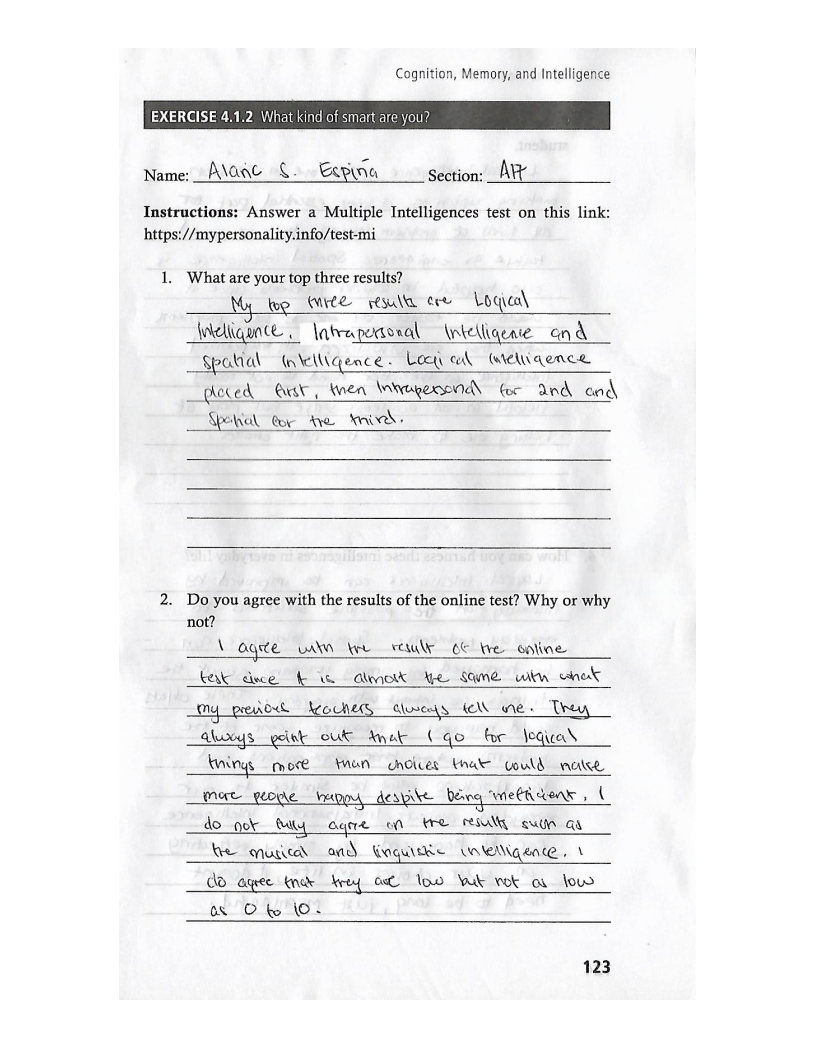 Cognition, Memory, and Intelligence
EXERCISE 4.1.2 What kind of smart are you?
Name: Alaric S. Espiña Section: A17
Instructions: Answer a Multiple Intelligences test on this link:
https://mypersonality.info/test-mi
1. What are your top three results?
My top three results are Logical
Intelligence, Intrapersonal Intelligence and
Spatial Intelligence. Logical intelligence
placed first, then Intrapersonal for 2nd and
Spatial for the third.
2. Do you agree with the results of the online test? Why or why
not?
I agree with the result of the online
test since it is almost the same with what
my previous teachers always tell me. They
always point out that I go for logical
things more than choices that would make
more people happy despite being inefficient. I
do not fully agree on the results such as
the musical and linguistic intelligence. I
do agree that they are low but not as low
as 0 to 10.
123